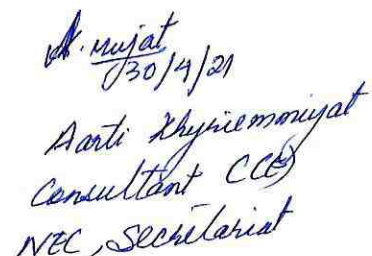 A. mujat
30/4/21
Aarti Khyriemmujat
Consultant (CCE)
NEC, Secretariat